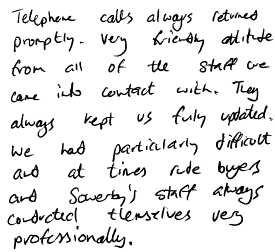 Telephone calls always returned
promptly. Very friendly attitude
from all of the staff we
came into contact with. They
always kept us fully updated.
We had particularly difficult
and at times rude buyers
and Sowerby's staff always
conducted themselves very
professionally.